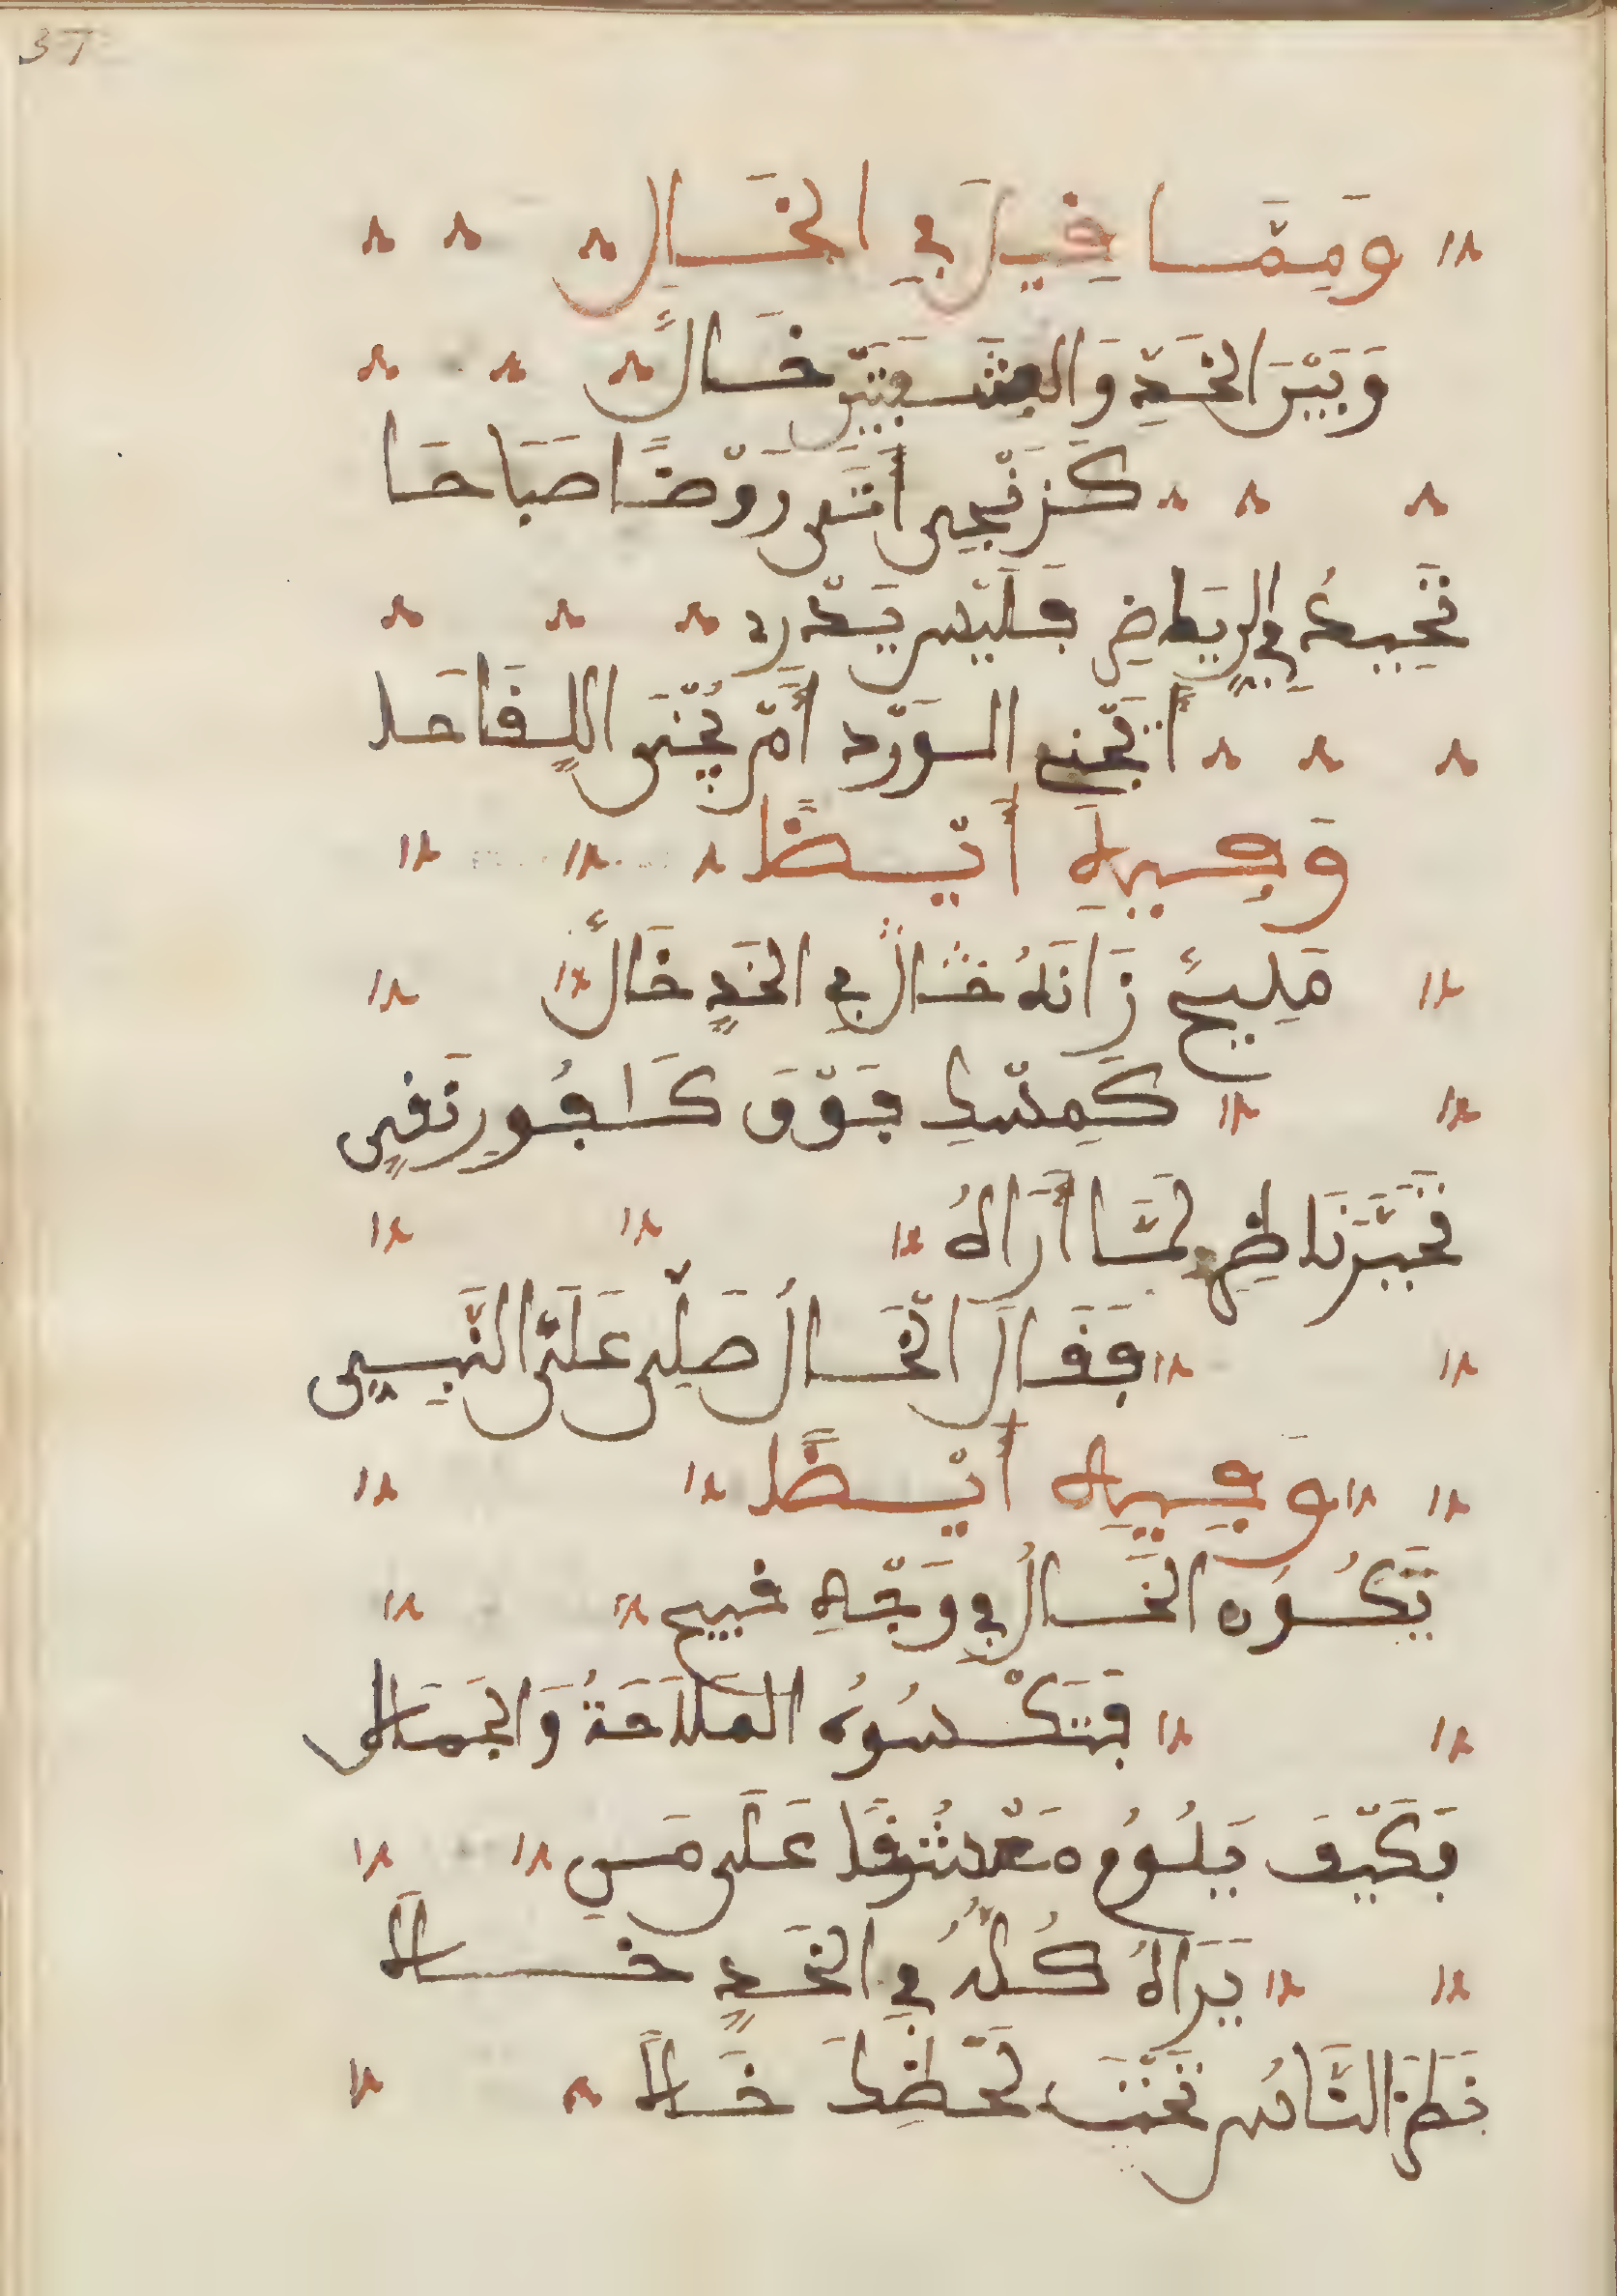 37
وَمِمَّا قِيلَ فِي الخَالِ
وَبَيْنَ الخَدِّ وَالشفتين خَالٌ
كَزنْجِي أَتَى رَوْضًا صَبَاحَا
تَحِيرُ فِي الرِيَاضِ فَلَيْس يَدْرِ
أَيَجْنِي الوَرْد أَمْ يُجْنَى اللِقَاحَا
وَفِيهِ أَيْضًا
مَلِيحٌ زَانَهُ خَالٌ فِي الخَدٍ خَالٌ
كَمِسْكِ فَوْقَ كَافُور نَقِي
تَحَيَّرَ نَاظِرِ لَمَّا أَرَاهُ
فَقَالَ الْخَالُ صَلِّى عَلَى النَّبِي
وَفِيهِ أَيْضًا
يَكُون الخَالُ فِي وَجْهِ قبيح
فَتَكْسُوهُ المَلَاحَةُ وَالجَمَالَا
فَكَيْفَ يَلُومُ مَعْشُوقًا عَلَى مَن
يَرَاهُ كُلُّهُ فِي الخَدٍ خَالًا
نَظَرَ النَّاسُ تَحْتَ لَحْظِكَ خَالًا